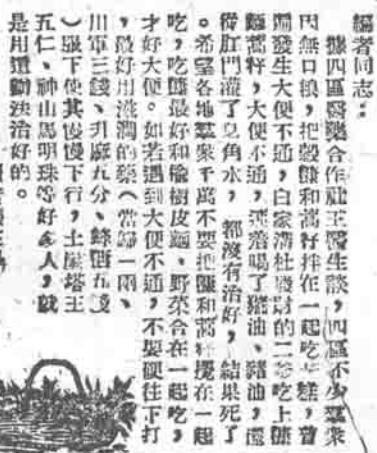 編者同志：
據四區醫藥合作社王醫生談，四區不少羣衆
因無口糧，把穀糠和蒿籽拌在一起吃，曾
發生大便不通，白家溝杜發財的二爹吃上糠
蒿籽，大便不通，喝了猪油、猪油，還
從肛門灌了皂角水，都沒有治好，結果死了
。希望各地羣衆千萬不要把糠和蒿籽攪在一起
吃，吃糠最好和榆樹皮麵、野菜合在一起吃，
才好大便。如若遇到大便不通，不要硬往下打
，最好用滋潤的藥（當歸一兩、
川軍三錢、升麻五分、五錢
）服下使其慢慢下行，土崖塔王
五仁、神山馬明珠等好多人，就
是用這辦法治好的。